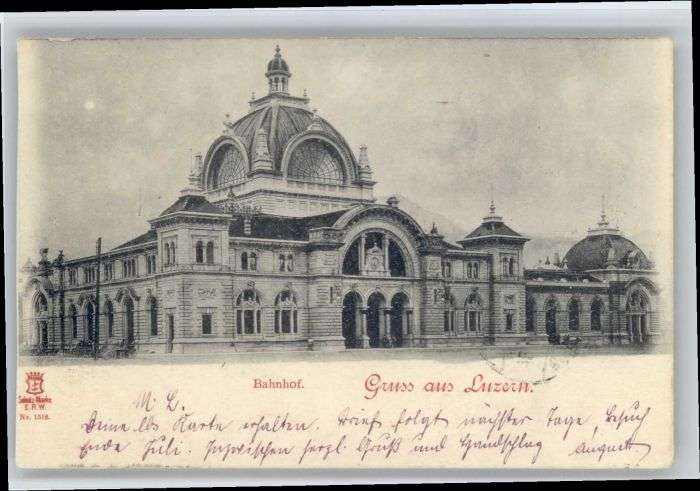 Bahnhof.
Gruss aus Luzern.
Schutz-Marke
E.R.W.
No. 1518.
M. L.
Deine lb. Karte erhalten. Brief folgt nächster Tage, Besuch
Ende Juli. Inzwischen herzl. Gruß und Handschlag August